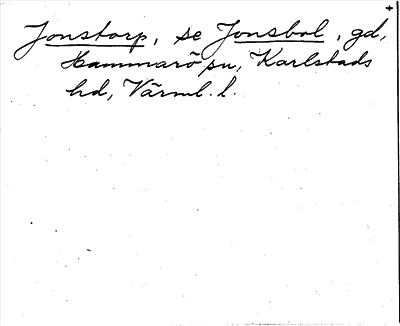 Jonstorp, se Jonsbol, gd,
Hammarö sn, Karlstads
hd, Värml. l.